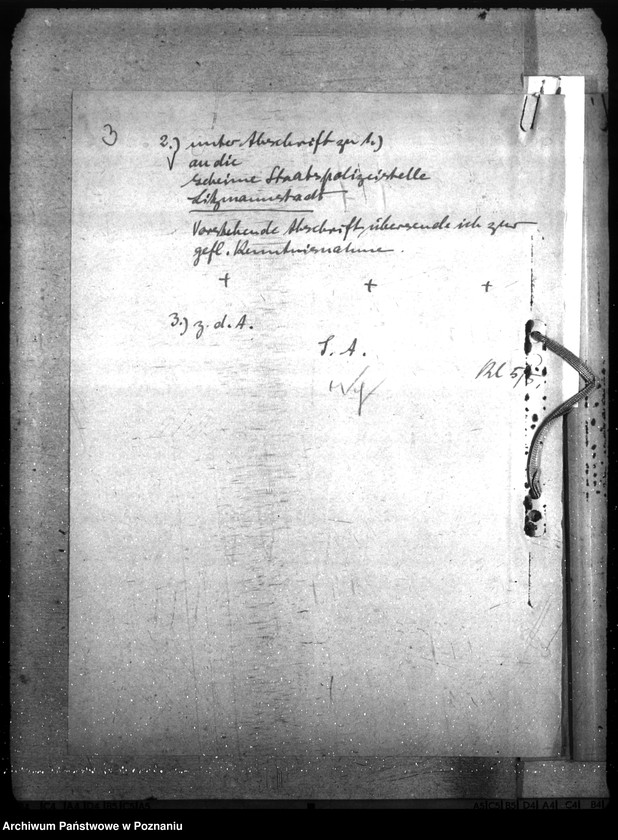 3
2.) unter Abschrift zu 1.)
an die
Geheime Staatspolizeistelle
Litzmannstadt
Vorstehende Abschrift übersende ich zur
gefl. Kenntnisnahme.
+ + +
3.) z. d. A.
I. A.
5/5.
A5 C5 B5 D4 A4 C4 B4
Archiwum Państwowe w Poznaniu